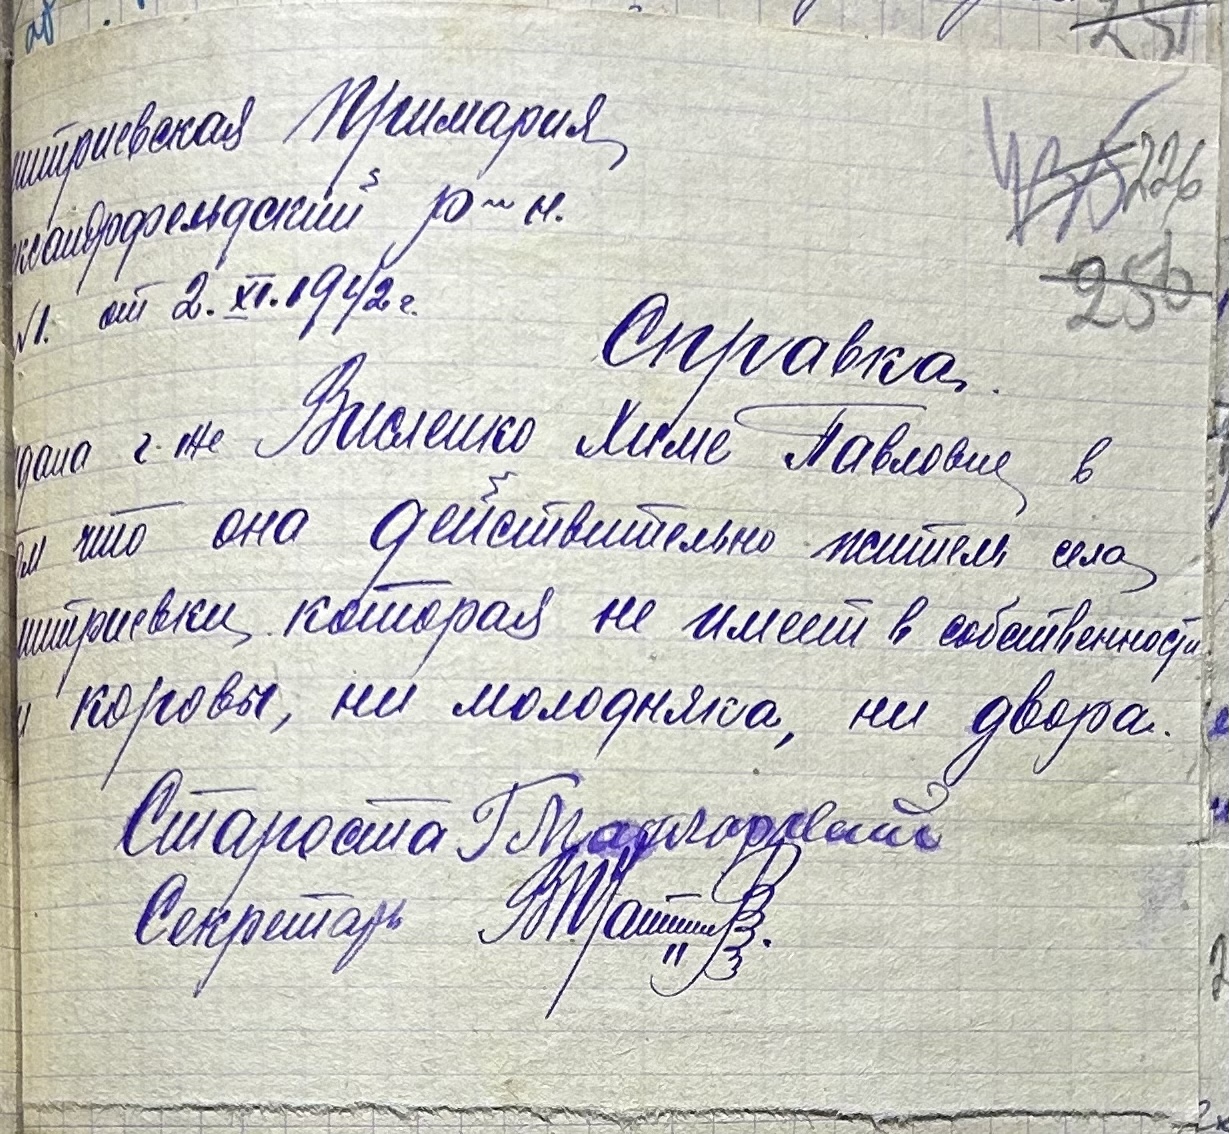 митриевская Примария
ександрфельдский р-н.
№1. от 2.XI.1942г.
226
256
Справка.
дана г-же Висленко Химе Павловне в
ом что она действительно житель села
митриевки, которая не имеет в собственности
и коровы, ни молодняка, ни двора.
Староста
Секретарь